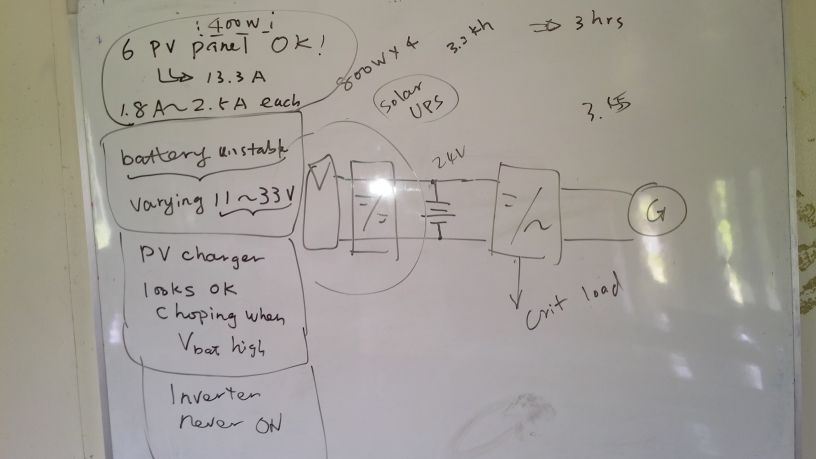 400W
6 PV panel OK!
↳ 13.3 A
1.8A~2.5A each
battery unstable
varying 11~33V
PV charger
looks OK
choping when
Vbat high
Inverter
never ON
800W x 4
⇒ 3 hrs
Solar
UPS
24V
G
Crit load